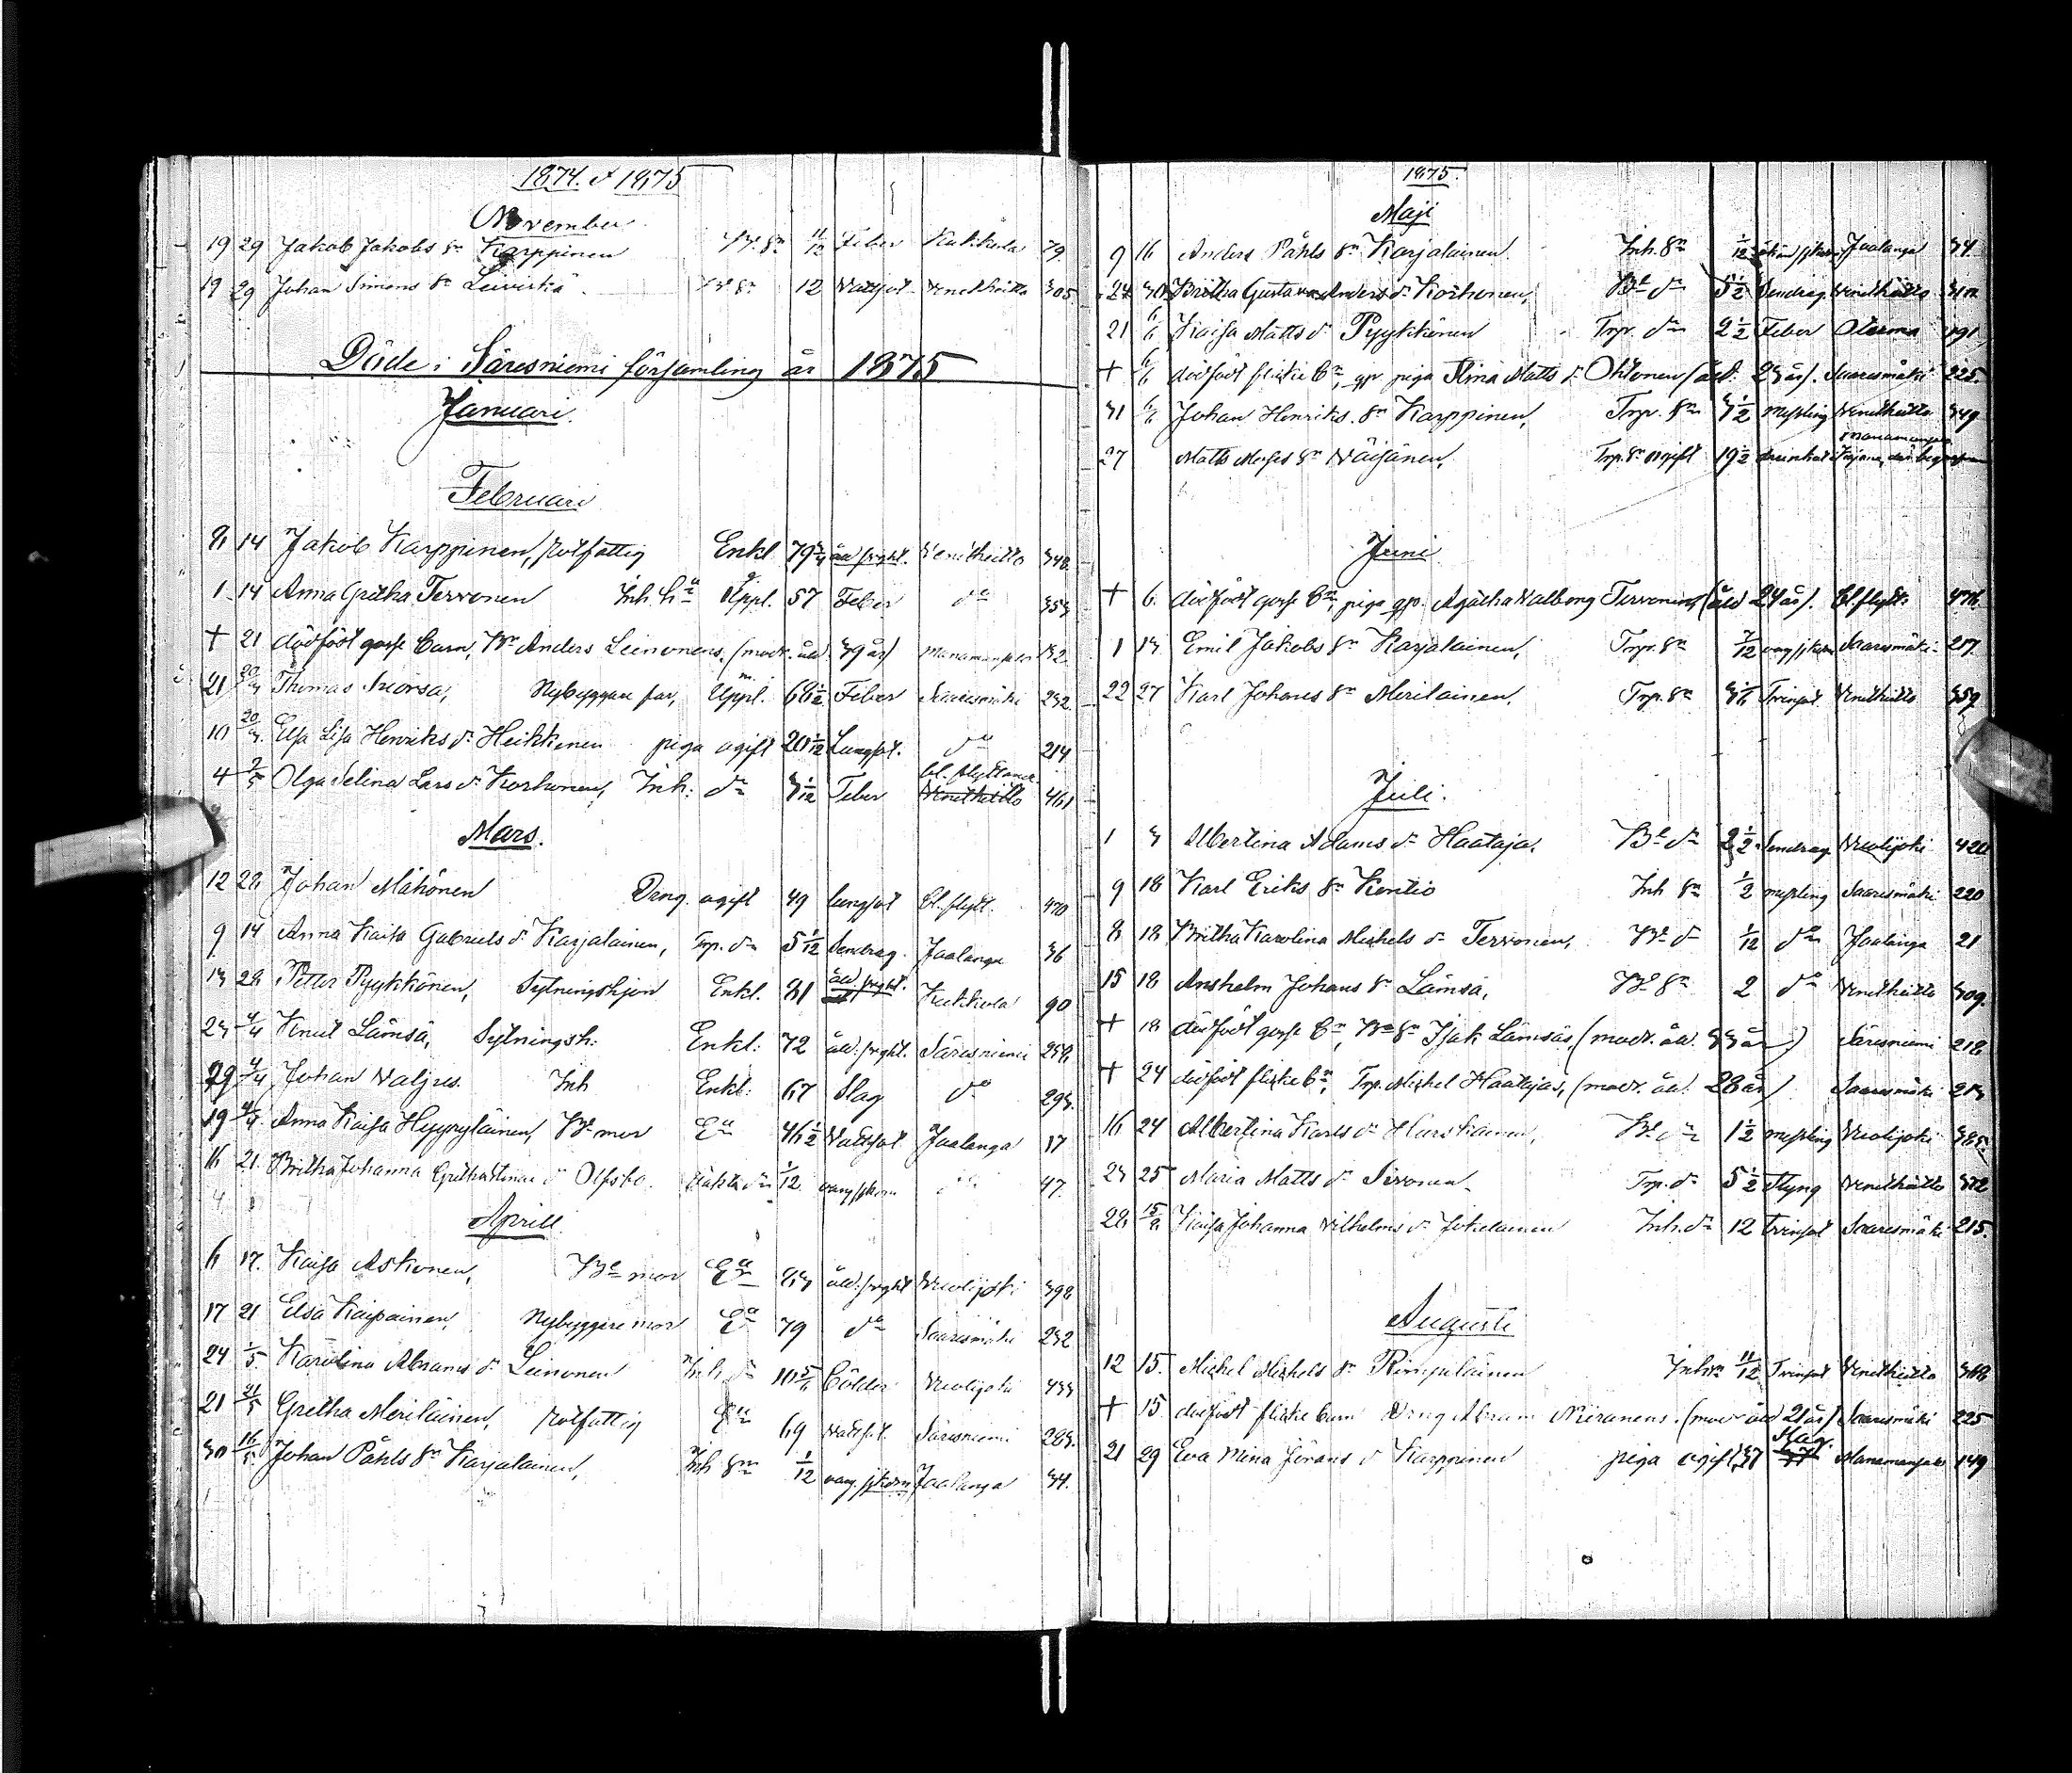 1874 & 1875
November
19 29 Jakob Jakobs sn Karppinen Be. sn 11/12 Feber Kukkola 79
19 29 Johan Simons sn Leiviskä Be. sn 12 Vattsot Venetheitto 305
Döde i Säresniemi församling år 1875
Januari.
Februari
8 14 Jakob Karppinen, rotfattig Enkl. 79 3/4 åld.svaght. Venetheitto 348
1 14 Anna Gretha Tervonen Inh. h:u g. Uppl. 57 Feber do 353
+ 21 dödfödt gosse barn, Be Anders Leinonens, (modr. åld. 39 år) Manamansalo 132
21 20/3 Thomas Morsa, Nybyggare far, m. Uppl. 66 1/2 Feber Saaresmäki 232
10 20/3 Elsa Lisa Henriks dr Heikkinen piga ogift 20 1/12 Lungsot. do 214
4 2/5 Olga Selina Lars dr Korhonen, Inh: dr 3 1/12 Feber bl. flyttande Venetheitto 461
Mars.
12 28 Johan Mähönen Dreng. ogift 49 lungsot bl. flytt. 470
9 14 Anna Kaisa Gabriels dr Karjalainen, Trp. dr 5 1/12 Bendrag. Jaalanga 36
13 28 Petter Pyykkönen, Sytningshjon Enkl. 81 åld.svght. Kukkola 90
23 4/4 Knut Lämsä, Sytningsh: Enkl: 72 åld.svght. Säresniemi 258
29 4/4 Johan Valjus Inh Enkl: 67 Slag do 293
19 4/4 Anna Kaisa Hyyryläinen, Be mor Ea 46 1/2 Vattsot Jaalanga 17
16 21. Britha Johanna dr Olsbo. dr 1/12 okänd sjkdom do 47.
Aprill
6 17. Kaisa Askonen, Be mor Ea 83 åld.svght Vuolijoki 398
17 21 Elsa Kaipainen, Nybyggare mor Ea 79 do Saaresmäki 232
24 1/5 Karolina Abrams dr Leinonen Inh dr 10 5/6 Bölder Vuolijoki 433
21 21/5 Gretha Meriläinen, rotfattig Ea 69 Vattsot. Säresniemi 283.
30 16/5 Johan Påhls sn Karjalainen, Inh sn 1/12 okänd sjkdom Jaalanga 34.
1875.
Maji
9 16 Anders Påhls sn Karjalainen. Inh. sn 1/12 okänd sjkdom Jaalanga 34
24 30 Britha Gustava Anders dr Korhonen, Be dr 5 1/2 Bendrag Venetheitto 310
21 6/6 Kaisa Matts dr Pyykkönen Trp. dr 2 1/2 Feber Oterma 191
+ 6/6 dödfödt flicke bn, gr piga Stina Matts dr Ohtonen (åld. 23 år). Saaresmäki 225.
31 6/6 Johan Henriks. sn Karppinen, Trp. sn 3 1/2 messling Venetheitto 349
27 Matts Moses sn Väisänen, Trp. sn ogift 19 1/2 drunknat Manamansalo Kajana, der begrafven
Juni
+ 6. dödfödt gosse bn, piga gr. Agatha Valborg Tervonens (åld 24 år). bl. flytt. 476.
1 13 Emil Jakobs sn Karjalainen, Trp. sn 7/12 okänd sjkdom Saaresmäki 217.
22 27 Karl Johans sn Meriläinen. Trp. sn 3/12 Trinsot. Venetheitto 359
Juli.
1 3 Albertina Adams dr Haataja. Be dr 2 1/2 Bendrag Vuolijoki 420
9 18 Karl Eriks sn Kontio Inh sn 1/2 messling Saaresmäki 220
8 18 Britha Karolina Michels dr Tervonen, Be dr 1/12 do Jaalanga 21
15 18 Ansholm Johans sn Lämsä, Be sn 2 do Venetheitto 309.
+ 18 dödfödt gosse bn, Be sn Isak Lämsäs, (modr. åld. 33 år) Säresniemi 218
+ 24 dödfödt flicke bn, Trp. Michel Haatajas, (modr. åld. 28 år) Saaresmäki 213
16 24 Albertina Karls dr Hurskainen, Be. dr 1 1/2 messling Vuolijoki 385
23 25 Maria Matts dr Sirvonen. Trp. dr 5 1/2 Styng Venetheitto 372
28 15/8 Kaisa Johanna Vilhelms dr Jokelainen Inh. dr 12 Trinsot Saaresmäki 215.
Augusti
12 15. Michel Michels sn Rimpiläinen Inh sn 11/12 Trinsot Venetheitto 368
+ 15 dödfödt flicke barn Dreng Abram Niiranens. (modr åld 21 år) Saaresmäki 225
21 29 Eva Mina Jörans dr Karppinen piga ogift 37 Slag. Manamansalo 149